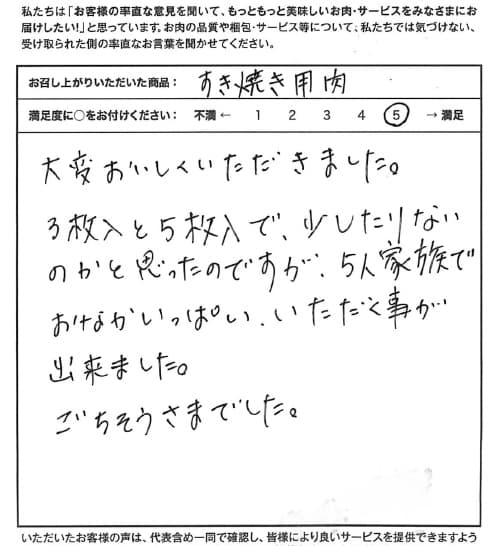 私たちは「お客様の率直な意見を聞いて、もっともっと美味しいお肉・サービスをみなさまにお
届けしたい!」と思っています。お肉の品質や梱包・サービス等について、私たちでは気づけない、
受け取られた側の率直なお言葉を聞かせてください。
お召し上がりいただいた商品： すき焼き用肉
満足度に○をお付けください： 不満 ← 1 2 3 4 5 → 満足
大変おいしくいただきました。
3枚入と5枚入で、少したりない
のかと思ったのですが、5人家族で
おなかいっぱい、いただく事が
出来ました。
ごちそうさまでした。
いただいたお客様の声は、代表含め一同で確認し、皆様により良いサービスを提供できますよう